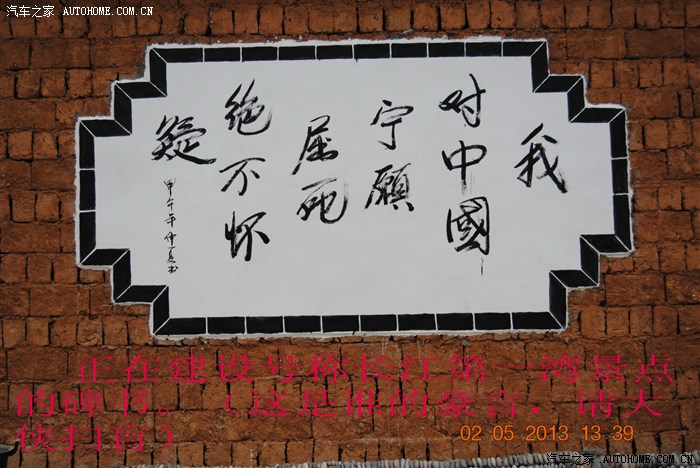 汽车之家 AUTOHOME.COM.CN
汽车之家 AUTOHOME.COM.CN
我
对中國
宁願
屈死
绝不怀
疑
甲午年仲夏书
正在建设号称长江第一湾景点
的碑书。（这是谁的豪言，请大
侠扫盲）
02 05 2013 13 39
汽车之家 AUTOHOME.COM.CN
汽车之家 AUTOHOME.COM.CN